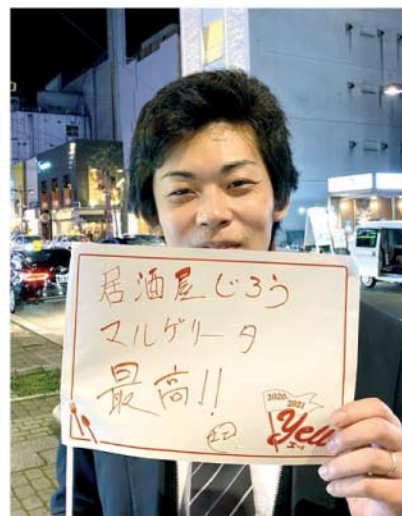 居酒屋じろう
マルゲリータ
最高!!
22
2020-2021
Yell
エール